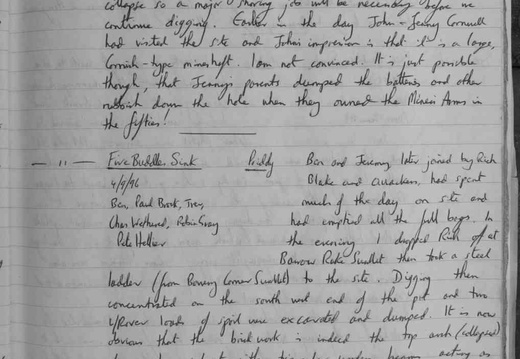 collapse so a major shoring job will be necessary before we
continue digging. Earlier in the day John + Jenny Cornwell
had visited the site and John's impression is that it is a large,
Cornish-type mineshaft. I am not convinced. It is just possible
though, that Jenny's parents dumped the batteries and other
rubbish down the hole when they owned the Miners Arms in
the fifties!
— " — Five Buddle Sink Priddy Ben and Jeremy later joined by Rich
4/9/96 Blake and had spent
Ben, Paul Brock, Trev, much of the day on site and
Chas Wethered, Robin Gray had emptied all the full bags. In
Pete Hellier the evening I dropped Rich off at
Barrow Rake Swallet then took a steel
ladder (from Bowery Corner Swallet) to the site. Digging then
concentrated on the south west end of the pit and two
loads of spoil were excavated and dumped. It is now
obvious that the brick work is indeed the top arch (collapsed)
acting as